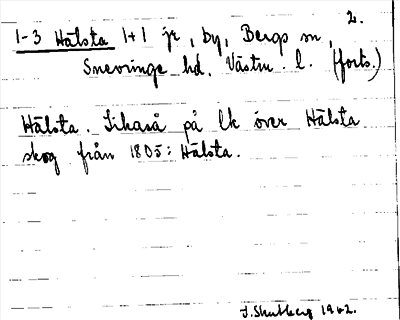 2.
1-3 Hälsta 1+1 jr, by, Bergs sn,
Snevringe hd. Västm. l. (forts.)
Hälsta. Likaså på lk över Hälsta
skog från 1805: Hälsta.
1962.